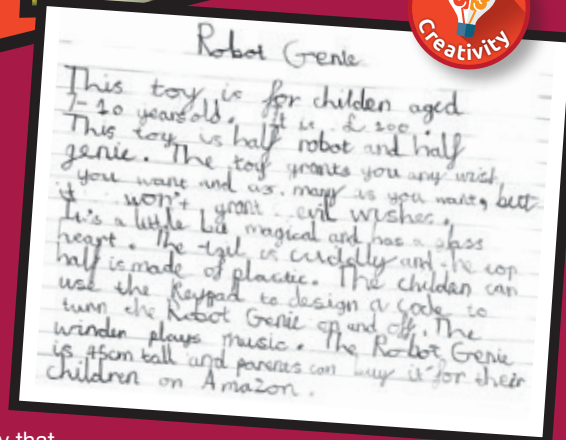 Creativity
Robot Genie
This toy is for childen aged
7-10 years old. It is £100.
This toy is half robot and half
genie. The toy grants you any wish
you want and as many as you want, but
it won't grant evil wishes.
It's a little bit magical and has a glass
heart. The tail is cuddly and the top
half is made of plastic. The childen can
use the Keypad to design a code to
turn the Robot Genie on and off. The
winder plays music. The Robot Genie
is 45cm tall and parents can buy it for their
children on Amazon.
y that